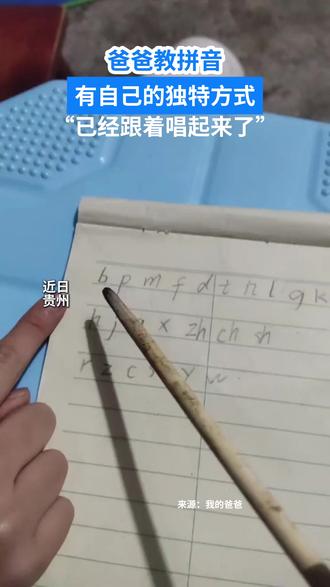 爸爸教拼音
有自己的独特方式
“已经跟着唱起来了”
近日
贵州
b p m f d t n l g k
h j q x zh ch sh
r z c s y w
来源：我的爸爸